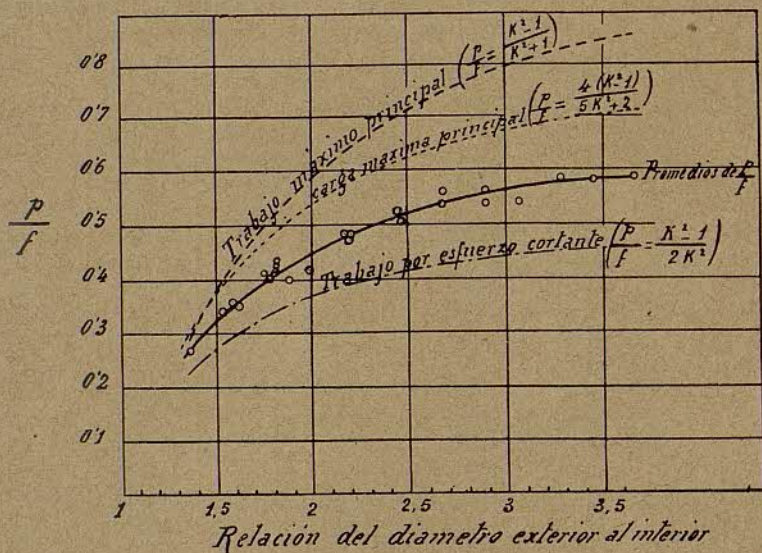 0'8
0'7
0'6
0'5
0'4
0'3
0'2
0'1
p/f
Trabajo máximo principal (P/f = K²-1/K²+1)
carga maxima principal (P/f = 4(K²-1)/5K²+2)
Promedios de P/f
Trabajo por esfuerzo cortante (P/f = K²-1/2K²)
1 1,5 2 2,5 3 3,5
Relación del diametro exterior al interior